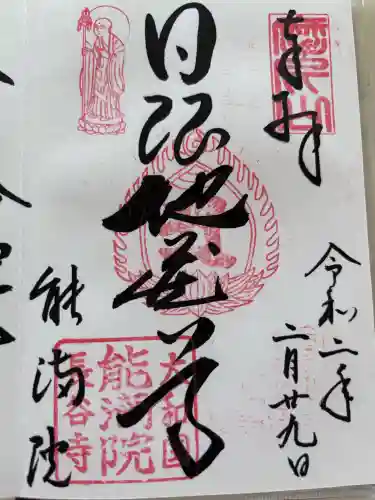 奉拝
令和二年
二月廿九日
日限地蔵尊
能満院
大和国
能満院
長谷寺